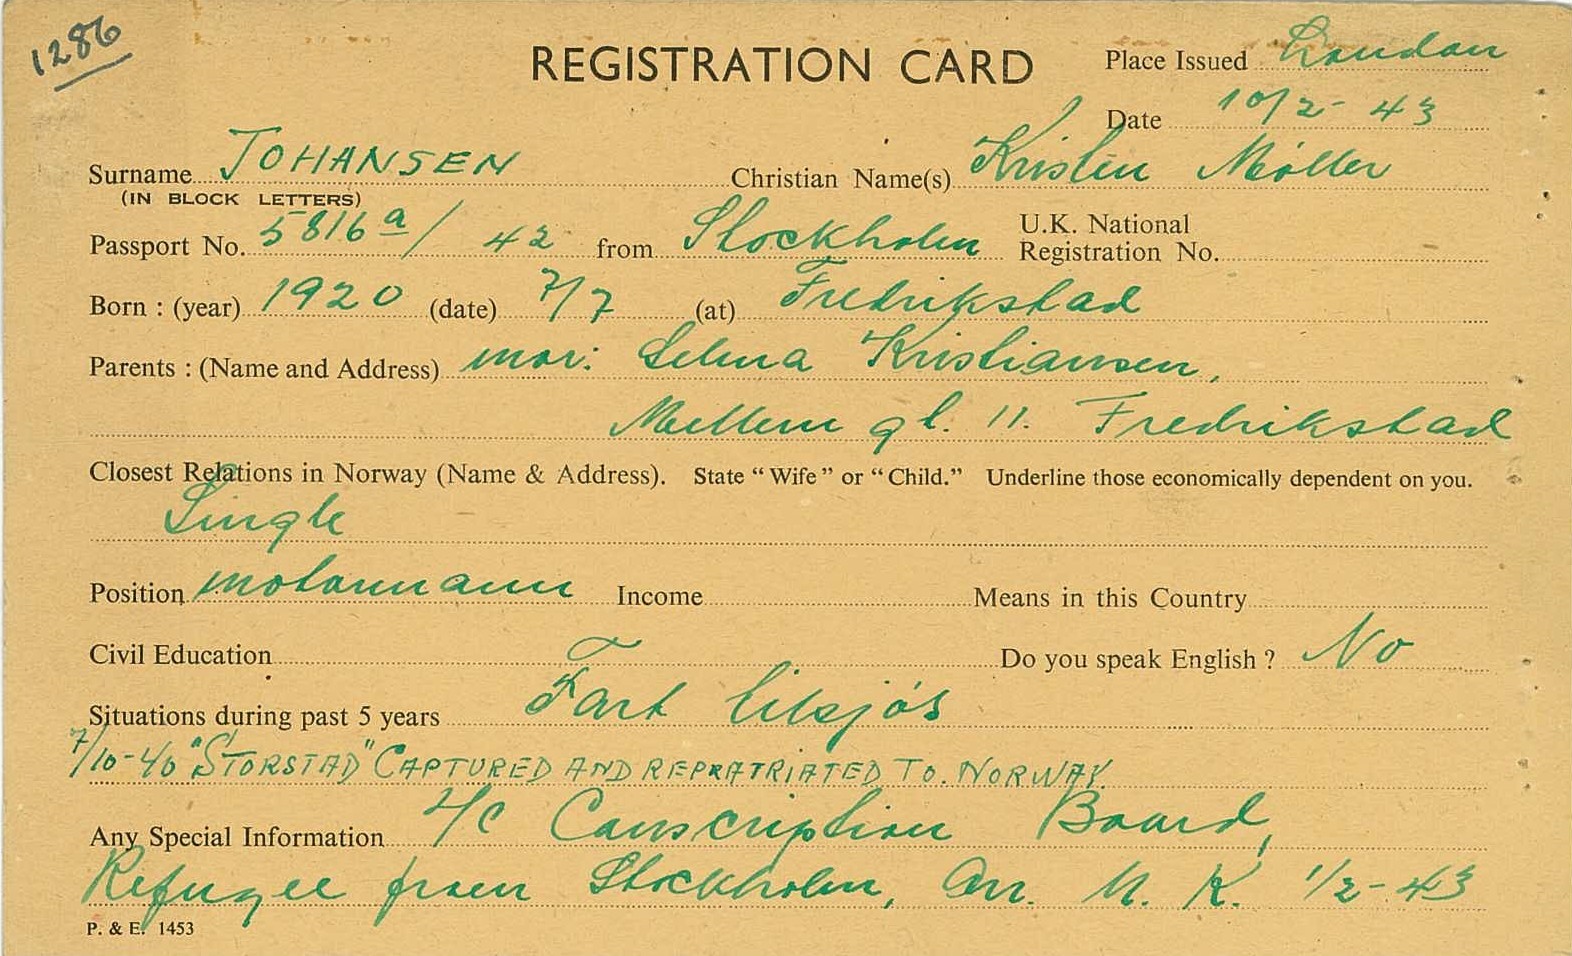 1286
REGISTRATION CARD
Place Issued London
Date 10/2-43
Surname JOHANSEN Christian Name(s) Kristen Möller
(IN BLOCK LETTERS)
Passport No. 5816a/42 from Stockholm U.K. National Registration No.
Born : (year) 1920 (date) 7/7 (at) Fredrikstad
Parents : (Name and Address) mor: Selma Kristiansen,
Mellem gt. 11. Fredrikstad
Closest Relations in Norway (Name & Address). State "Wife" or "Child." Underline those economically dependent on you.
Single
Position motormann Income Means in this Country
Civil Education Do you speak English ? No
Situations during past 5 years Fart tilsjös
7/10-40 "STORSTAD" CAPTURED AND REPRATRIATED TO. NORWAY.
Any Special Information Conscription Board,
Refugee from Stockholm, Arr. U. K. 1/2-43
P. & E. 1453